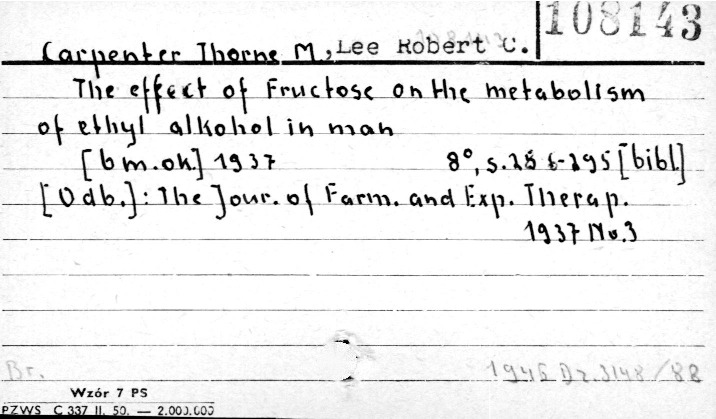 108143
Carpenter Thorne M., Lee Robert C.
The effect of Fructose on the metabolism
of ethyl alkohol in man
[b m. ok.] 1937 8°, s. 286-295 [bibl.]
[Odb.]: The Jour. of Farm. and Exp. Therap.
1937 No. 3
Br. 1946 Dz. 3148/88
Wzór 7 PS
PZWS C 337 II. 50. — 2.000.000